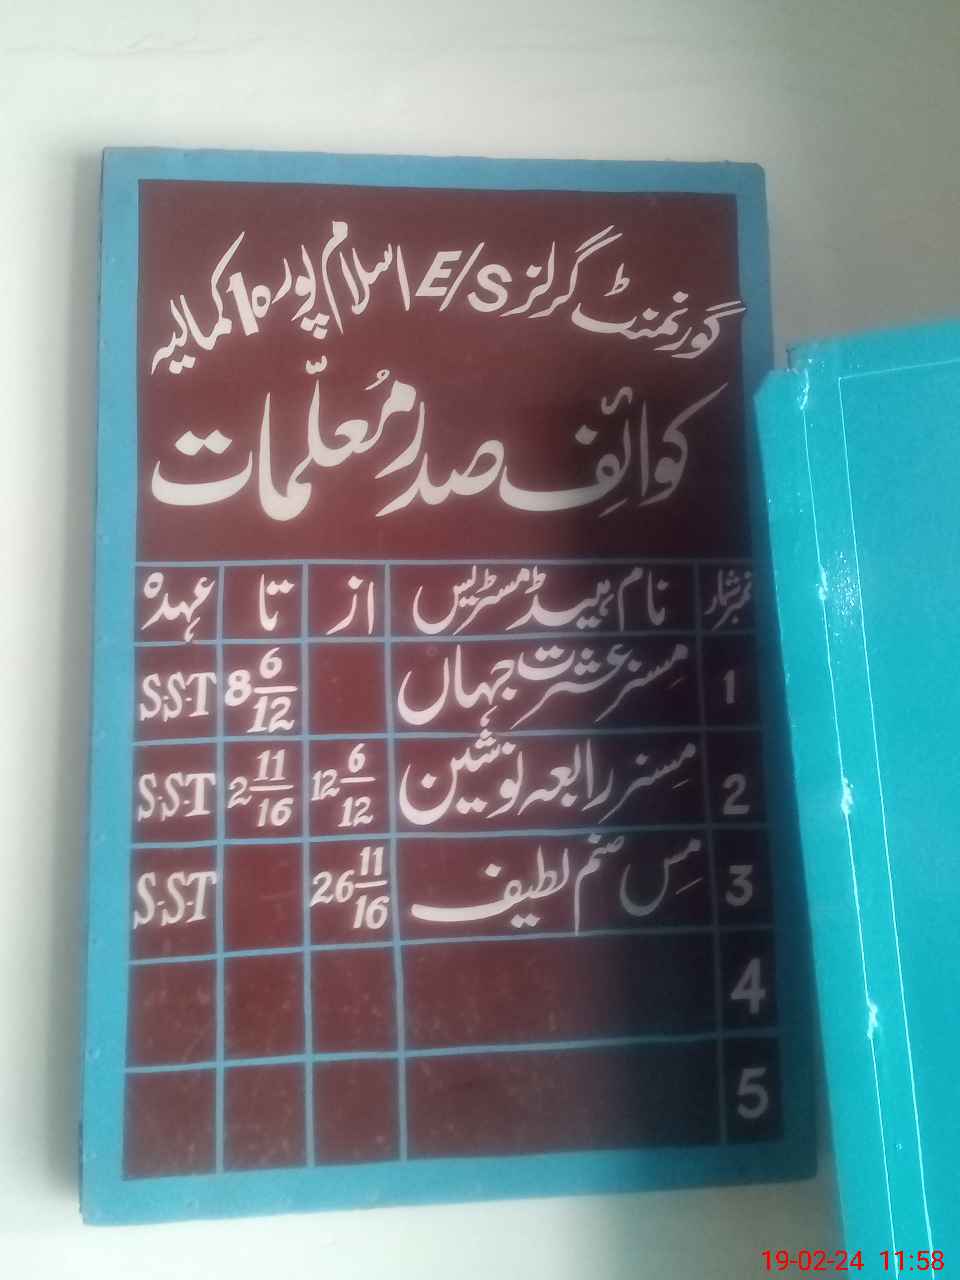 گورنمنٹ گرلز E/S اسلام پورہ 1 کمالیہ
کوائف صدر معلّمات
نمبر شمار نام ہیڈ مسٹریس از تا عہدہ
1 مسز عشرت جہاں 8 6/12 S.S.T
2 مسز رابعہ نوشین 12 6/12 2 11/16 S.S.T
3 مِس صنم لطیف 26 11/16 S.S.T
4
5
19-02-24 11:58